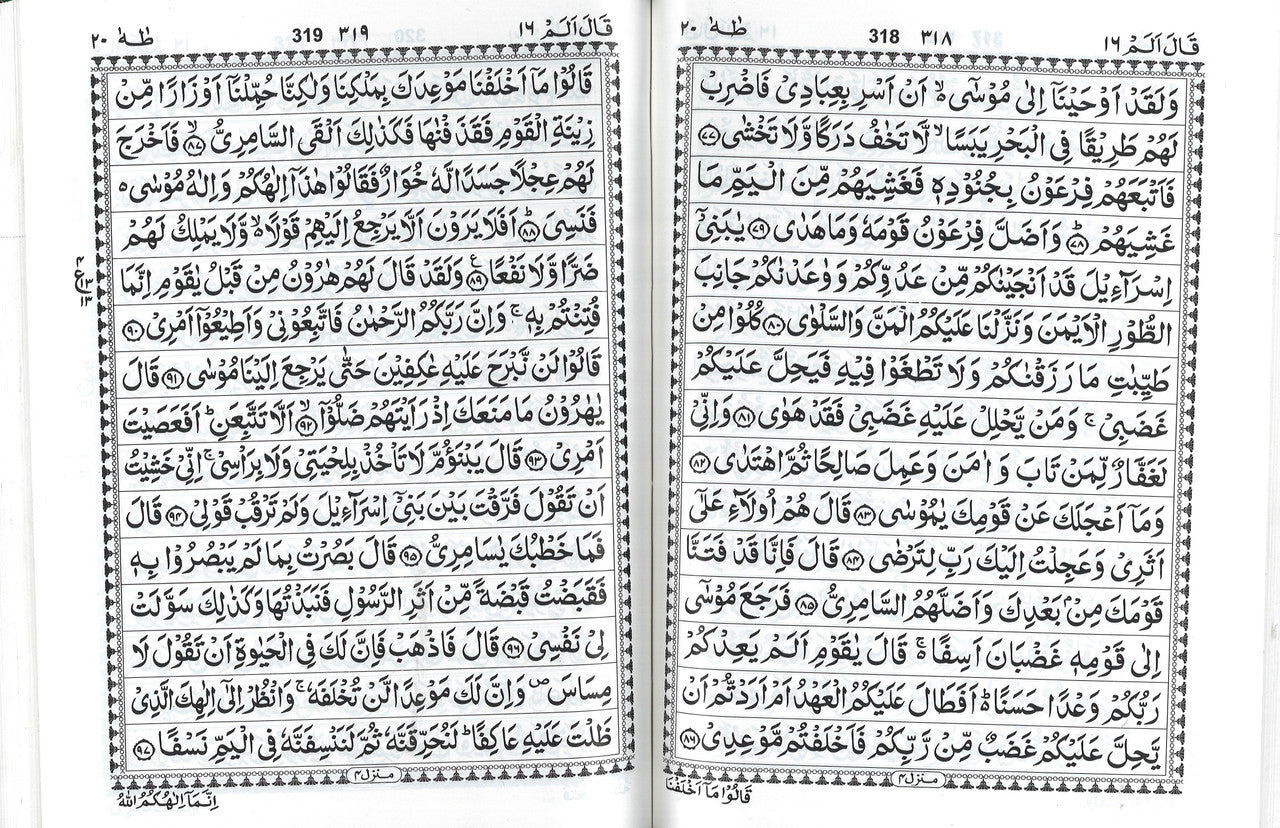 قَالَ اَلَمْ ١٦
٣١٨ 318
طٰهٰ ٢٠
وَلَقَدْ اَوْحَيْنَاۤ اِلٰى مُوْسٰۤى ۙ اَنْ اَسْرِ بِعِبَادِىْ فَاضْرِبْ
لَهُمْ طَرِيْقًا فِى الْبَحْرِ يَبَسًا ۙ لَّا تَخٰفُ دَرَكًا وَّلَا تَخْشٰى ﴿٧٧﴾
فَاَتْبَعَهُمْ فِرْعَوْنُ بِجُنُوْدِهٖ فَغَشِيَهُمْ مِّنَ الْيَمِّ مَا
غَشِيَهُمْ ﴿٧٨﴾ؕ وَاَضَلَّ فِرْعَوْنُ قَوْمَهٗ وَمَا هَدٰى ﴿٧٩﴾ يٰبَنِىْۤ
اِسْرَآءِيْلَ قَدْ اَنْجَيْنٰكُمْ مِّنْ عَدُوِّكُمْ وَوٰعَدْنٰكُمْ جَانِبَ
الطُّوْرِ الْاَيْمَنَ وَنَزَّلْنَا عَلَيْكُمُ الْمَنَّ وَالسَّلْوٰى ﴿٨٠﴾ كُلُوْا مِنْ
طَيِّبٰتِ مَا رَزَقْنٰكُمْ وَلَا تَطْغَوْا فِيْهِ فَيَحِلَّ عَلَيْكُمْ
غَضَبِىْ ۚ وَمَنْ يَّحْلِلْ عَلَيْهِ غَضَبِىْ فَقَدْ هَوٰى ﴿٨١﴾ وَاِنِّىْ
لَغَفَّارٌ لِّمَنْ تَابَ وَاٰمَنَ وَعَمِلَ صَالِحًا ثُمَّ اهْتَدٰى ﴿٨٢﴾
وَمَاۤ اَعْجَلَكَ عَنْ قَوْمِكَ يٰمُوْسٰى ﴿٨٣﴾ قَالَ هُمْ اُولَآءِ عَلٰٓى
اَثَرِىْ وَعَجِلْتُ اِلَيْكَ رَبِّ لِتَرْضٰى ﴿٨٤﴾ قَالَ فَاِنَّا قَدْ فَتَنَّا
قَوْمَكَ مِنْۢ بَعْدِكَ وَاَضَلَّهُمُ السَّامِرِىُّ ﴿٨٥﴾ فَرَجَعَ مُوْسٰۤى
اِلٰى قَوْمِهٖ غَضْبَانَ اَسِفًا ۚ قَالَ يٰقَوْمِ اَلَمْ يَعِدْكُمْ
رَبُّكُمْ وَعْدًا حَسَنًا ؕ اَفَطَالَ عَلَيْكُمُ الْعَهْدُ اَمْ اَرَدْتُّمْ اَنْ
يَّحِلَّ عَلَيْكُمْ غَضَبٌ مِّنْ رَّبِّكُمْ فَاَخْلَفْتُمْ مَّوْعِدِىْ ﴿٨٦﴾
منزل ٤
قَالُوْا مَاۤ اَخْلَفْنَا
قَالَ اَلَمْ ١٦
٣١٩ 319
طٰهٰ ٢٠
قَالُوْا مَاۤ اَخْلَفْنَا مَوْعِدَكَ بِمَلْكِنَا وَلٰكِنَّا حُمِّلْنَاۤ اَوْزَارًا مِّنْ
زِيْنَةِ الْقَوْمِ فَقَذَفْنٰهَا فَكَذٰلِكَ اَلْقَى السَّامِرِىُّ ﴿٨٧﴾ۙ فَاَخْرَجَ
لَهُمْ عِجْلًا جَسَدًا لَّهٗ خُوَارٌ فَقَالُوْا هٰذَاۤ اِلٰهُكُمْ وَاِلٰهُ مُوْسٰى ە
فَنَسِىَ ﴿٨٨﴾ؕ اَفَلَا يَرَوْنَ اَلَّا يَرْجِعُ اِلَيْهِمْ قَوْلًا ۙ وَّلَا يَمْلِكُ لَهُمْ
ضَرًّا وَّلَا نَفْعًا ﴿٨٩﴾ۧ وَلَقَدْ قَالَ لَهُمْ هٰرُوْنُ مِنْ قَبْلُ يٰقَوْمِ اِنَّمَا
٤
ع ١٣
١٣
فُتِنْتُمْ بِهٖ ۚ وَاِنَّ رَبَّكُمُ الرَّحْمٰنُ فَاتَّبِعُوْنِىْ وَاَطِيْعُوْۤا اَمْرِىْ ﴿٩٠﴾
قَالُوْا لَنْ نَّبْرَحَ عَلَيْهِ عٰكِفِيْنَ حَتّٰى يَرْجِعَ اِلَيْنَا مُوْسٰى ﴿٩١﴾ قَالَ
يٰهٰرُوْنُ مَا مَنَعَكَ اِذْ رَاَيْتَهُمْ ضَلُّوْۤا ﴿٩٢﴾ۙ اَلَّا تَتَّبِعَنِ ؕ اَفَعَصَيْتَ
اَمْرِىْ ﴿٩٣﴾ قَالَ يَبْنَؤُمَّ لَا تَاْخُذْ بِلِحْيَتِىْ وَلَا بِرَاْسِىْ ۚ اِنِّىْ خَشِيْتُ
اَنْ تَقُوْلَ فَرَّقْتَ بَيْنَ بَنِىْۤ اِسْرَآءِيْلَ وَلَمْ تَرْقُبْ قَوْلِىْ ﴿٩٤﴾ قَالَ
فَمَا خَطْبُكَ يٰسَامِرِىُّ ﴿٩٥﴾ قَالَ بَصُرْتُ بِمَا لَمْ يَبْصُرُوْا بِهٖ
فَقَبَضْتُ قَبْضَةً مِّنْ اَثَرِ الرَّسُوْلِ فَنَبَذْتُهَا وَكَذٰلِكَ سَوَّلَتْ
لِىْ نَفْسِىْ ﴿٩٦﴾ قَالَ فَاذْهَبْ فَاِنَّ لَكَ فِى الْحَيٰوةِ اَنْ تَقُوْلَ لَا
مِسَاسَ ۪ وَاِنَّ لَكَ مَوْعِدًا لَّنْ تُخْلَفَهٗ ۚ وَانْظُرْ اِلٰٓى اِلٰهِكَ الَّذِىْ
ظَلْتَ عَلَيْهِ عَاكِفًا ؕ لَنُحَرِّقَنَّهٗ ثُمَّ لَنَنْسِفَنَّهٗ فِى الْيَمِّ نَسْفًا ﴿٩٧﴾
منزل ٤
اِنَّمَاۤ اِلٰهُكُمُ اللّٰهُ